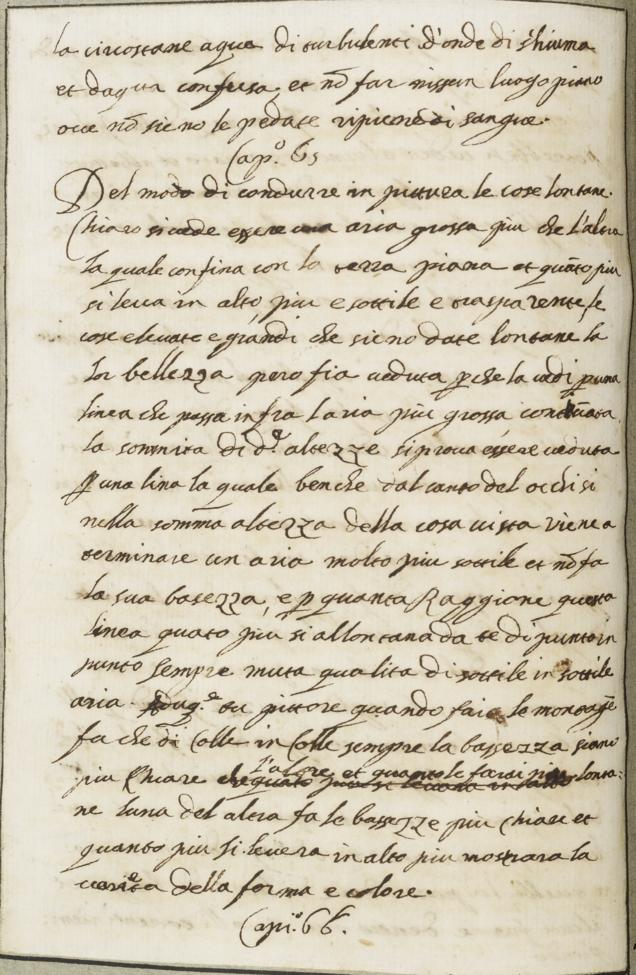 la circostane aque di turbulenti d'onde di schiuma
et daqua confusa, et nō far nissun luogo piano
ove nō sieno le pedate ripiene di sangue.
Cap.º 65
Del modo di condurre in pittura le cose lontane.
Chiaro si vede essere una aria grossa piu che l'altra
la quale confina con la terra piana et quāto piu
si leva in alto, piu e sottile e trasparente, le
cose elevate e grandi che sieno date lontane la
lor bellezza pero fia veduta ꝑche la vedi ꝑ una
linea che passa infra laria piu grossa continuata
la sommita di d.ᵉ altezze si prova essere veduta
ꝑ una lina la quale benche dal canto del occhi si
nella somma altezza della cosa vista viene a
terminare un aria molto piu sottile et nō fa
la sua basezza, e ꝑ quanta Raggione questa
linea quāto piu si allontana da te di punto in
punto sempre muta qualita di sottile in sottile
aria. tu pittore quando fai le montagē
fa che di Colle in Colle sempre la bassezza siano
piu Chiare l'altre, et quanto le farai piu lonta-
ne luna del altra fa le bassezze piu chiare et
quanto piu si levera in alto piu mostrara la
verita della forma e colore.
Capi.º 66.